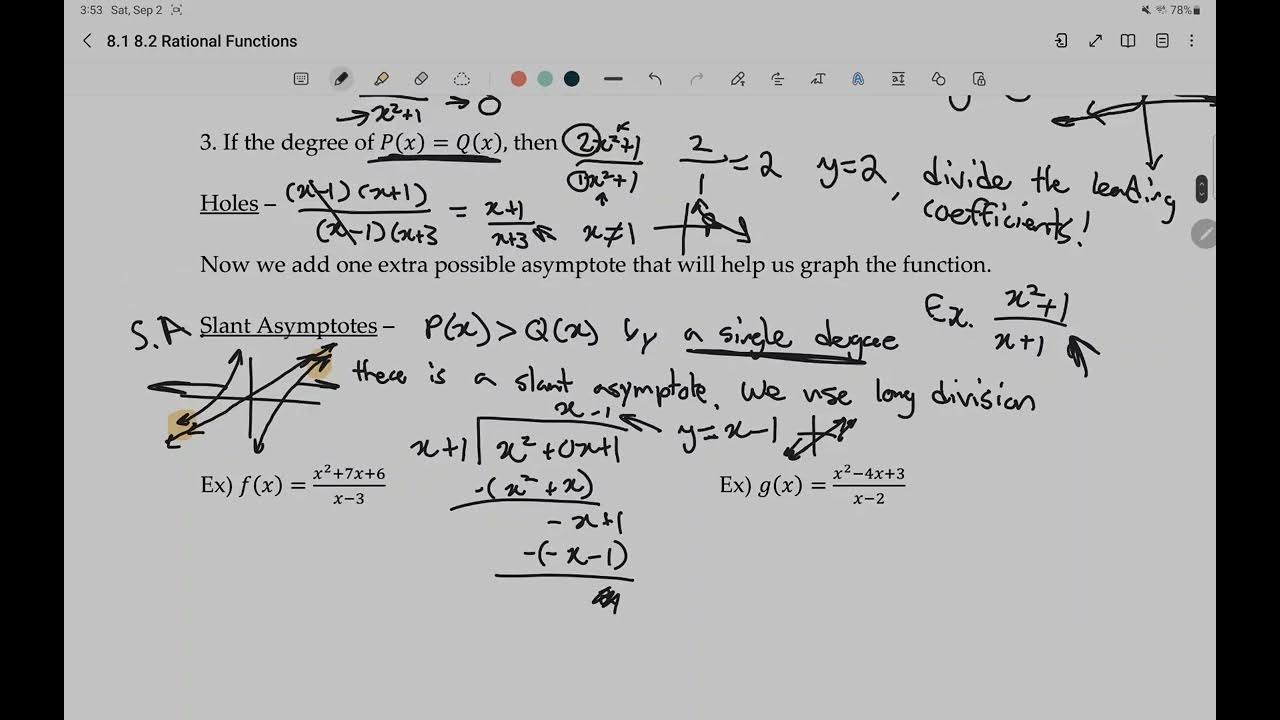 3:53 Sat, Sep 2 78%
8.1 8.2 Rational Functions
→ x²+1 → 0
3. If the degree of P(x) = Q(x), then 2x²+1 / 1x²+1 2/1 = 2 y=2, divide the leading coefficients!
Holes – (x-1)(x+1) / (x-1)(x+3 = x+1 / x+3 x≠1
Now we add one extra possible asymptote that will help us graph the function.
S.A Slant Asymptotes – P(x) > Q(x) by a single degree Ex. x²+1 / x+1
there is a slant asymptote. We use long division
x-1
x+1 x²+0x+1 y=x-1
-(x²+x)
-x+1
-(-x-1)
Ex) f(x) = x²+7x+6 / x−3 Ex) g(x) = x²−4x+3 / x−2